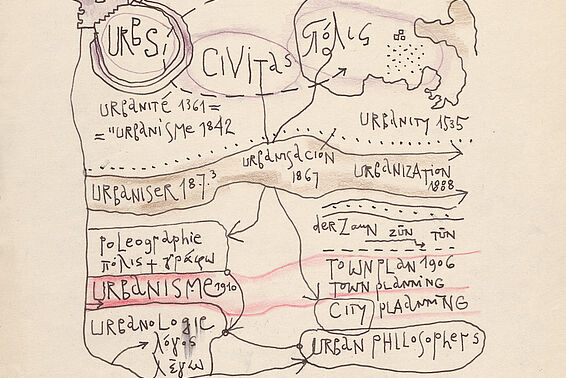 URBS
CIVITAS
πόλις
URBANITÉ 1361 =
= "URBANISME 1842
URBANITY 1535
URBANISACION
1867
URBANIZATION
1888
URBANISER 187.³
derZaun ZŪN TŪN
POLEOGRAPHIE
πόλις + γράφω
TOWN PLAN 1906
TOWN PLANNING
URBANISME 1910
CITY PLANNING
URBANOLOGIE
λόγος
λέγω
URBAN PHILOSOPHERS